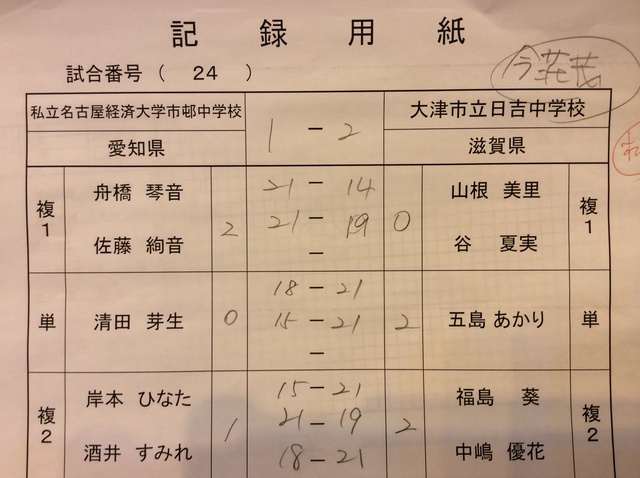 記録用紙
試合番号 ( 24 )
私立名古屋経済大学市邨中学校 1 - 2 大津市立日吉中学校
愛知県 滋賀県
複1 舟橋 琴音 佐藤 絢音 2 21 - 14 0 山根 美里 谷 夏実 複1
21 - 19
-
単 清田 芽生 0 18 - 21 2 五島 あかり 単
15 - 21
-
複2 岸本 ひなた 酒井 すみれ 1 15 - 21 2 福島 葵 中嶋 優花 複2
21 - 19
18 - 21